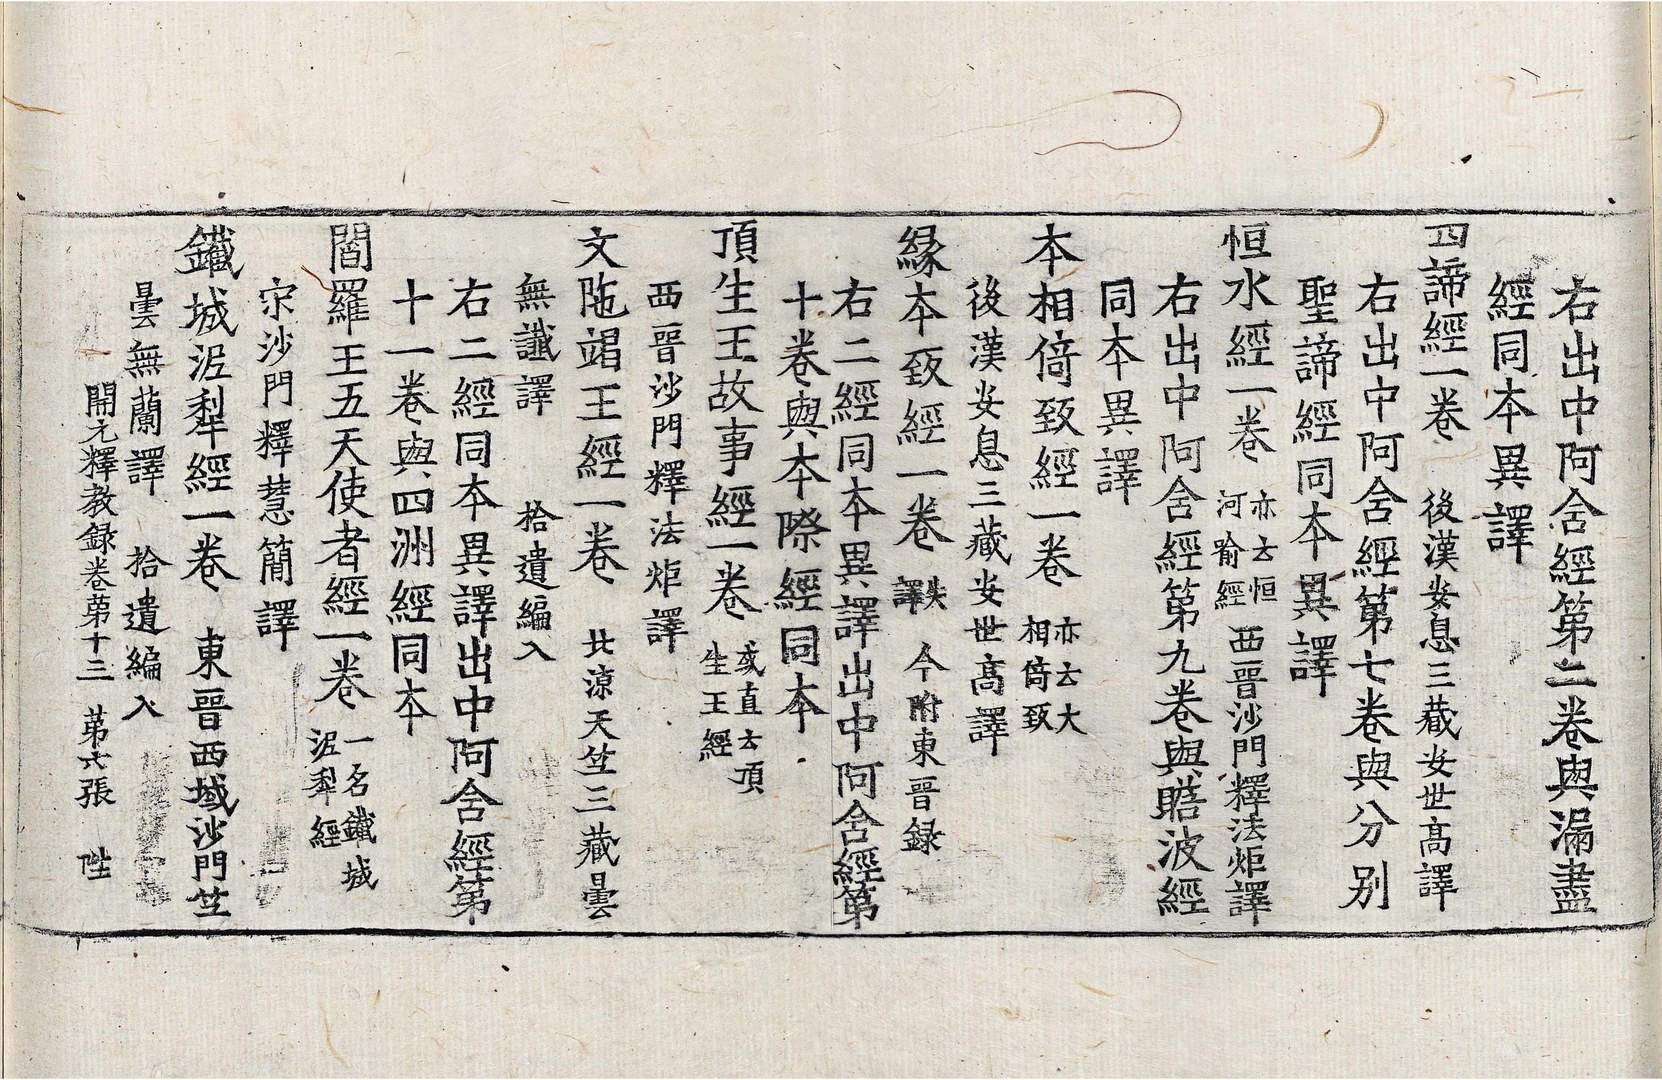 右出中阿含經第二卷與漏盡
經同本異譯
四諦經一卷 後漢安息三藏安世高譯
右出中阿含經第七卷與分别
聖諦經同本異譯
恒水經一卷 亦云恒河喻經 西晋沙門釋法炬譯
右出中阿含經第九卷與瞻波經
同本異譯
本相倚致經一卷 亦云大相倚致
後漢安息三藏安世髙譯
緣本致經一卷 失譯 今附東晋録
右二經同本異譯出中阿含經第
十卷與本際經同本
頂生王故事經一卷 或直云頂生王經
西晋沙門釋法炬譯
文陁竭王經一卷 北涼天竺三藏曇
無讖譯 拾遺編入
右二經同本異譯出中阿含經第
十一卷與四洲經同本
閻羅王五天使者經一卷 一名鐵城泥犁經
宋沙門釋慧簡譯
鐵城泥犁經一卷 東晋西域沙門竺
曇無蘭譯 拾遺編入
開元釋教録卷第十三 第六張 陞